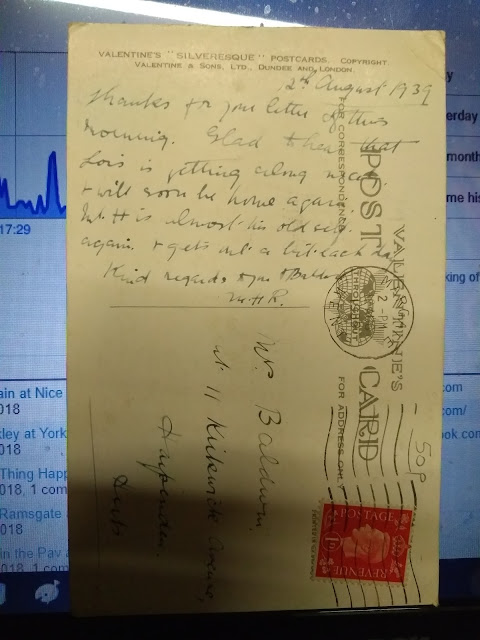 VALENTINE'S "SILVERESQUE" POSTCARDS. COPYRIGHT.
VALENTINE & SONS, LTD., DUNDEE AND LONDON.
2nd August 1939
Thanks for your letter of this
morning. Glad to hear that
Lois is getting along nicely
& will soon be home again.
Mr H is almost his old self
again & gets out a bit each day
Kind regards to you & Baldwin
M.H.R.
FOR CORRESPONDENCE
POST CARD
VALENTINE'S
FOR ADDRESS ONLY
2 - PM
Mr. Baldwin
at 11 Kirkwick Avenue,
Harpenden
Herts
50P
POSTAGE
1D
REVENUE
17:29
erday
month
me his
king of
ain at Nice
018
kley at York
018
Thing Happ
018, 1 com
Ramsgate
018
in the Pav a
018, 1 com
com
com/
ook.com